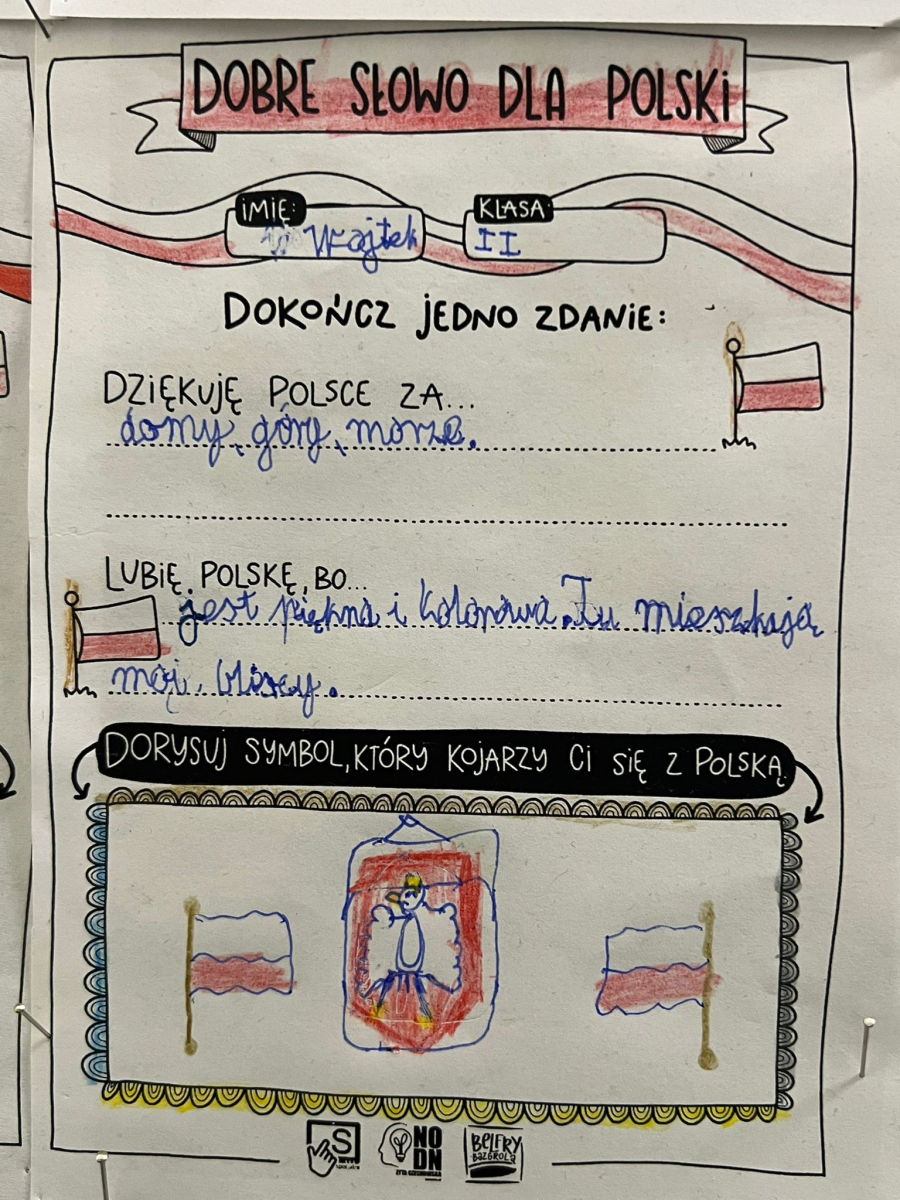 DOBRE SŁOWO DLA POLSKI
IMIĘ:
Wojtek
KLASA
II
DOKOŃCZ JEDNO ZDANIE:
DZIĘKUJĘ POLSCE ZA...
domy, góry, morze.
LUBIĘ POLSKĘ, BO...
jest piękna i kolorowa. Tu mieszkają
moi bliscy.
DORYSUJ SYMBOL, KTÓRY KOJARZY CI SIĘ Z POLSKĄ.
S
NO
DN
BELFRY
BAZGROLĄ